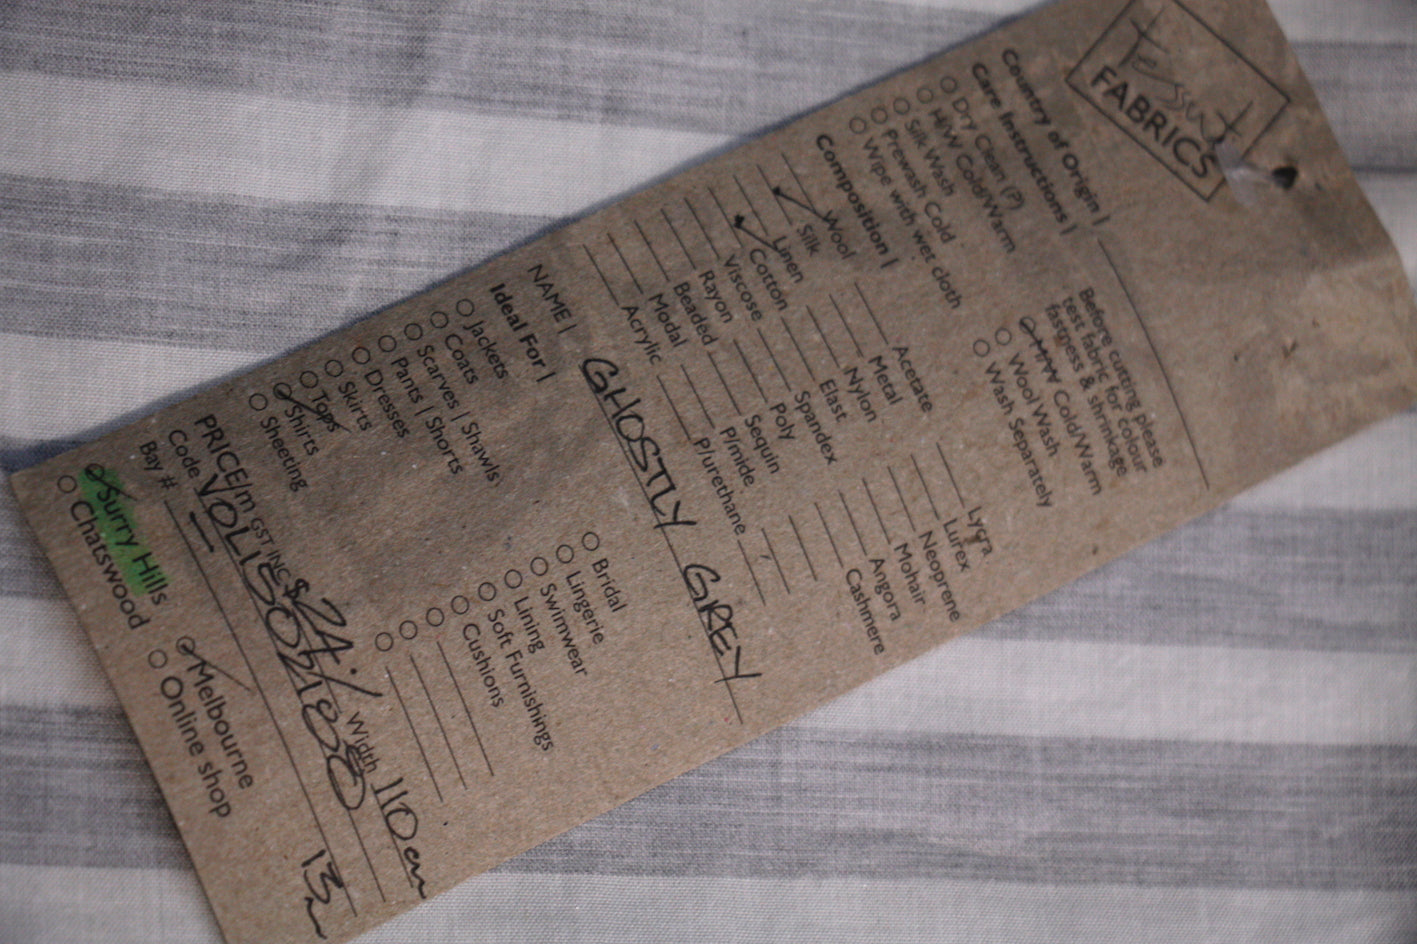 Tessuti
FABRICS
Country of Origin |
Care Instructions |
Dry Clean (P)
H/W Cold/Warm
Silk Wash
Prewash Cold
Wipe with wet cloth
Before cutting please
test fabric for colour
fastness & shrinkage
M/W Cold/Warm
Wool Wash
Wash Separately
Composition |
Wool
Silk
Linen
Cotton
Viscose
Rayon
Beaded
Modal
Acrylic
Acetate
Metal
Nylon
Elast
Spandex
Poly
Sequin
P/mide
P/urethane
Lycra
Lurex
Neoprene
Mohair
Angora
Cashmere
NAME | GHOSTLY GREY
Ideal For |
Jackets
Coats
Scarves | Shawls
Pants | Shorts
Dresses
Skirts
Tops
Shirts
Sheeting
Bridal
Lingerie
Swimwear
Lining
Soft Furnishings
Cushions
PRICE/m GST INC $24.- Width 110cm
Code
Bay # 13m
Surry Hills
Chatswood
Melbourne
Online shop